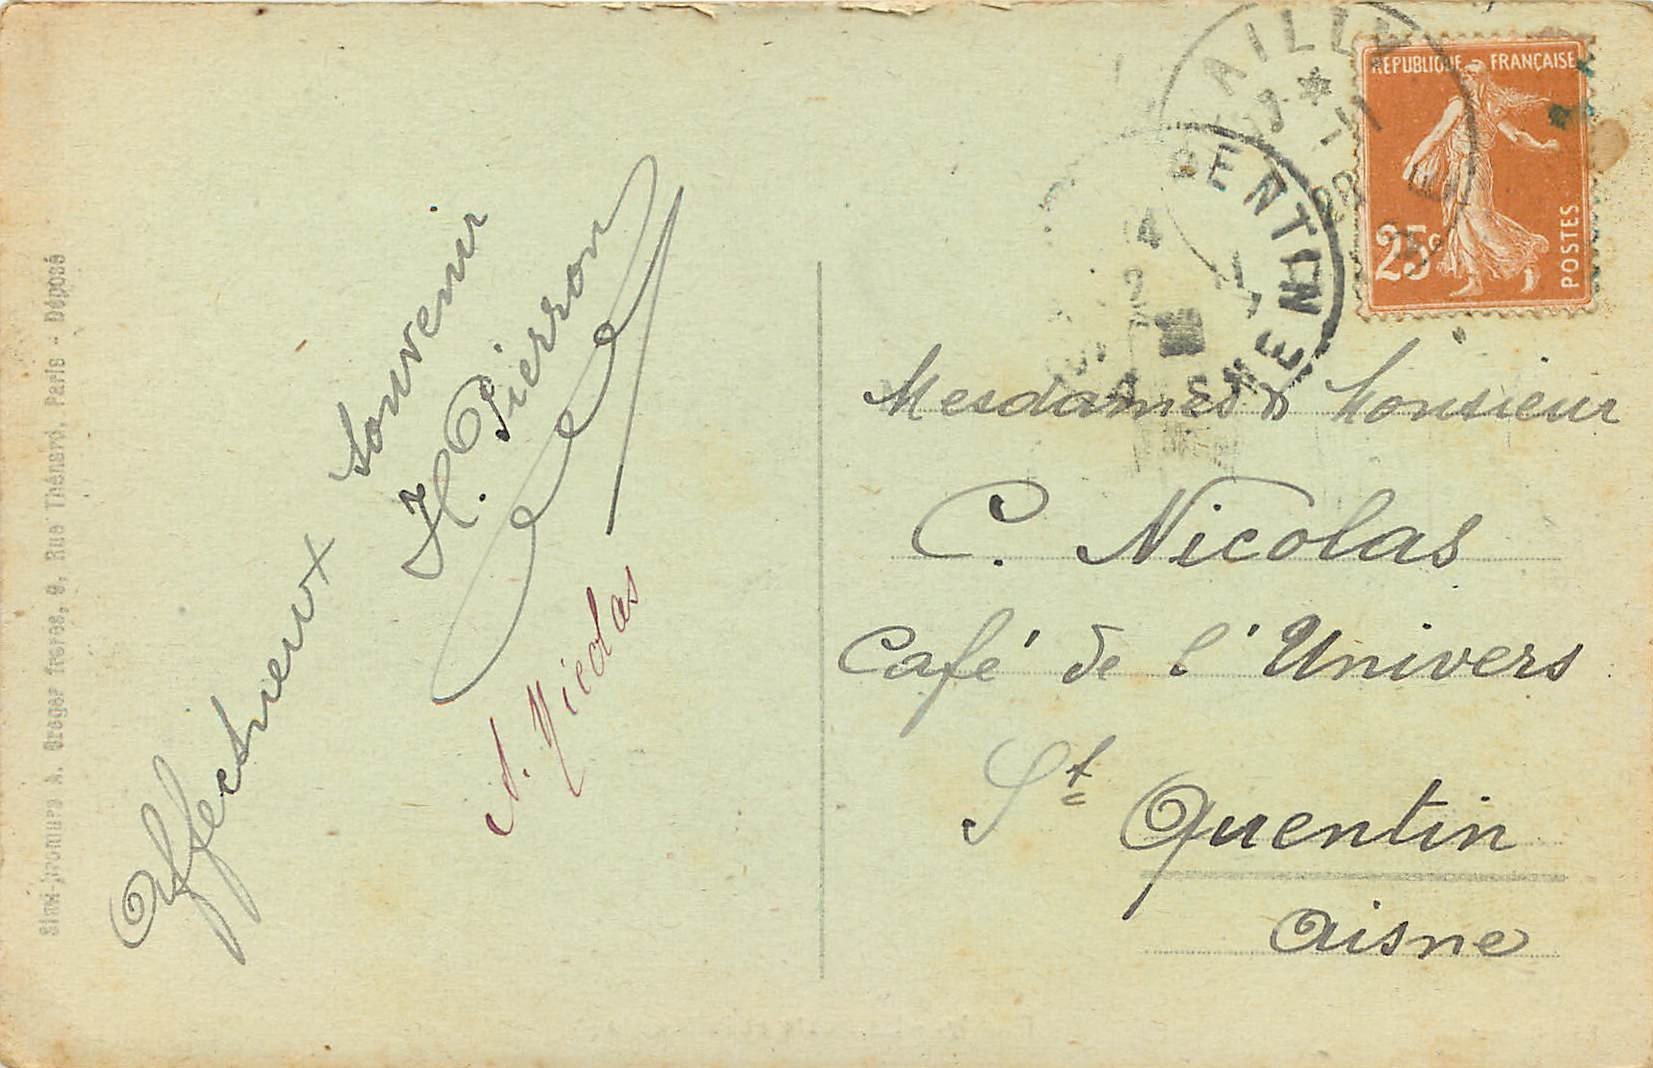 Affectueux souvenir
H. Pierron
A. Nicolas
Simi-Bromure A. Breger frères, 9, Rue Thénard, Paris - Déposé
REPUBLIQUE FRANÇAISE
25c
POSTES
AILLY
QUENTIN
AISNE
Mesdames & Monsieur
C. Nicolas
Café de l'Univers
St Quentin
Aisne